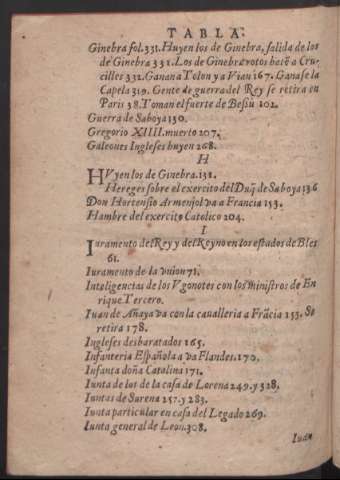 TABLA.
Ginebra fol.331. Huyen los de Ginebra, salida de los
de Ginebra 331. Los de Ginebra rotos hazē a Cru-
cilles 332. Ganan a Tolon y a Vian 167. Ganase la
Capela 319. Gente de guerra del Rey se retira en
Paris 38. Toman el fuerte de Besiu 102.
Guerra de Saboya 130.
Gregorio XIIII. muerto 207.
Galeones Ingleses huyen 268.
H
HVyen los de Ginebra. 132.
Hereges sobre el exercito del Duq̄ de Saboya 136
Don Hortensio Armenjol va a Francia 153.
Hambre del exercito Catolico 204.
I
Iuramento del Rey y del Reyno en los estados de Bles
61.
Iuramento de la vnion 71.
Inteligenctas de los Vgonotes con los ministros de En
rique Tercero.
Iuan de Añaya va con la caualleria a Frācia 153. Se
retira 178.
Ingleses desbaratados 165.
Infanteria Española a va Flandes. 170.
Infanta doña Catalina 171.
Iunta de los de la casa de Lorena 249. y 328.
Iuntas de Surena 257. y 283.
Iunta particular en casa del Legado 269.
Iunta general de Leon. 308.
Iuan